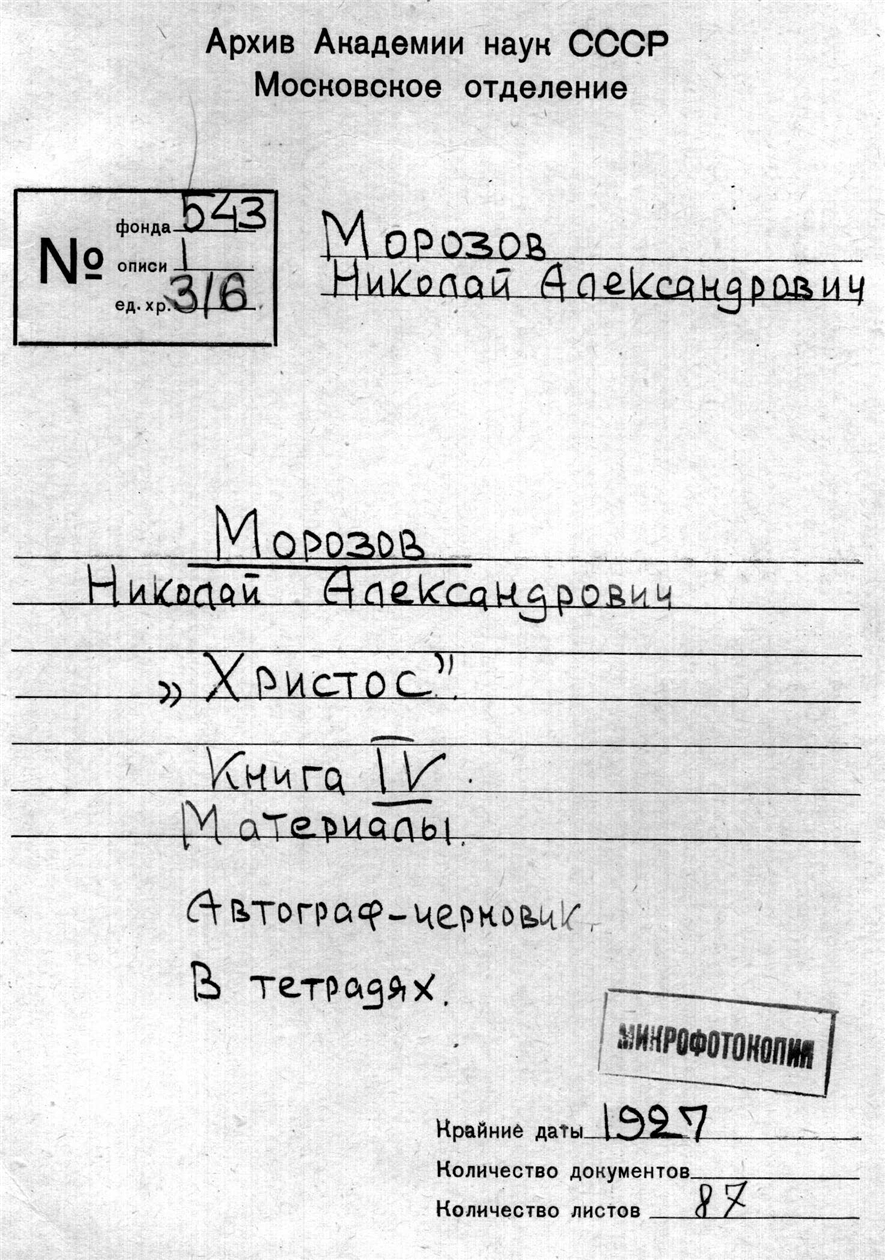 Архив Академии наук СССР
Московское отделение
№
фонда 543
описи 1
ед. хр. 316
Морозов
Николай Александрович
Морозов
Николай Александрович
„Христос".
Книга IV.
Материалы.
Автограф-черновик.
В тетрадях.
МИКРОФОТОКОПИЯ
Крайние даты 1927
Количество документов
Количество листов 87